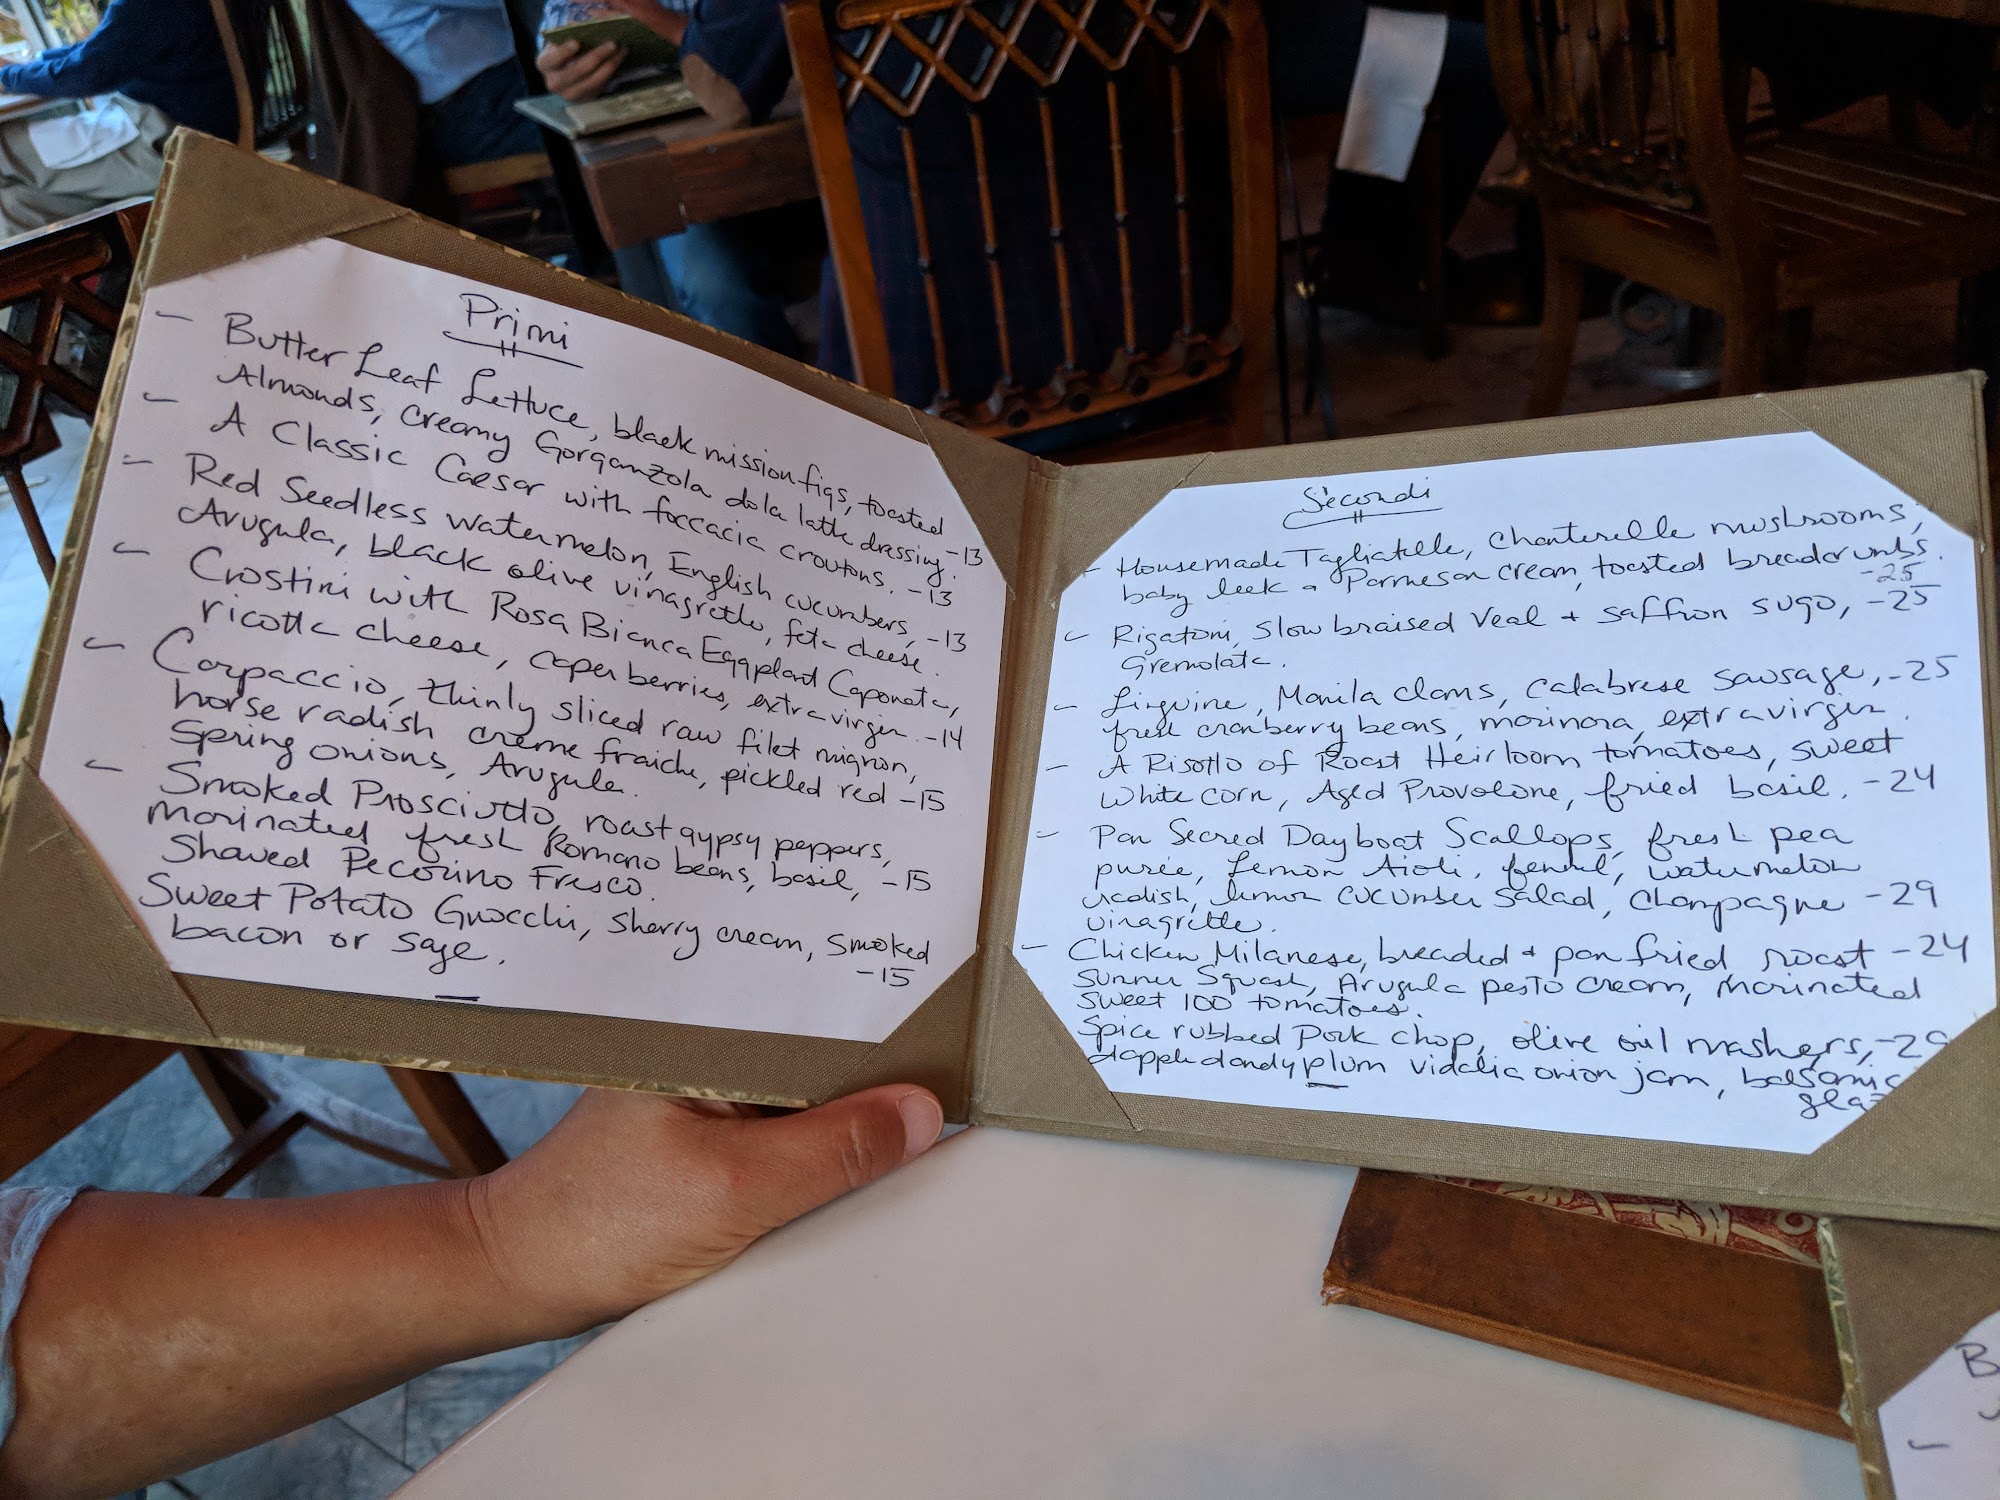 Primi
- Butter Leaf Lettuce, black mission figs, toasted
Almonds, creamy Gorganzola dola latte dressing. -13
- A Classic Caesar with foccacia croutons. -13
- Red Seedless watermelon, English cucumbers, -13
Arugula, black olive vinagrette, feta cheese.
- Crostini with Rosa Bianca Eggplant Caponata,
ricotta cheese, caper berries, extra virgin. -14
- Carpaccio, thinly sliced raw filet mignon,
horse radish creme fraiche, pickled red -15
Spring onions, Arugula.
- Smoked Prosciutto, roast gypsy peppers,
marinated fresh Romano beans, basil, -15
Shaved Pecorino Fresco.
Sweet Potato Gnocchi, sherry cream, smoked
bacon or sage. -15
Secondi
- Housemade Tagliatelle, Chanterelle mushrooms,
baby leek & Parmesan cream, toasted breadcrumbs.
-25
- Rigatoni, slow braised Veal + saffron sugo, -25
Gremolata.
- Linguine, Manila clams, Calabrese sausage, -25
fresh cranberry beans, marinara, extra virgin.
- A Risotto of Roast Heirloom tomatoes, sweet
White corn, Aged Provolone, fried basil. -24
- Pan Seared Dayboat Scallops, fresh pea
purée, Lemon Aioli, fennel, watermelon
radish, lemon cucumber salad, Champagne -29
vinagrette.
- Chicken Milanese, breaded + pan fried, roast -24
summer Squash, Arugula pesto cream, marinated
sweet 100 tomatoes.
Spice rubbed Pork chop, olive oil mashers, -29
dapple dandy plum vidalia onion jam, balsamic